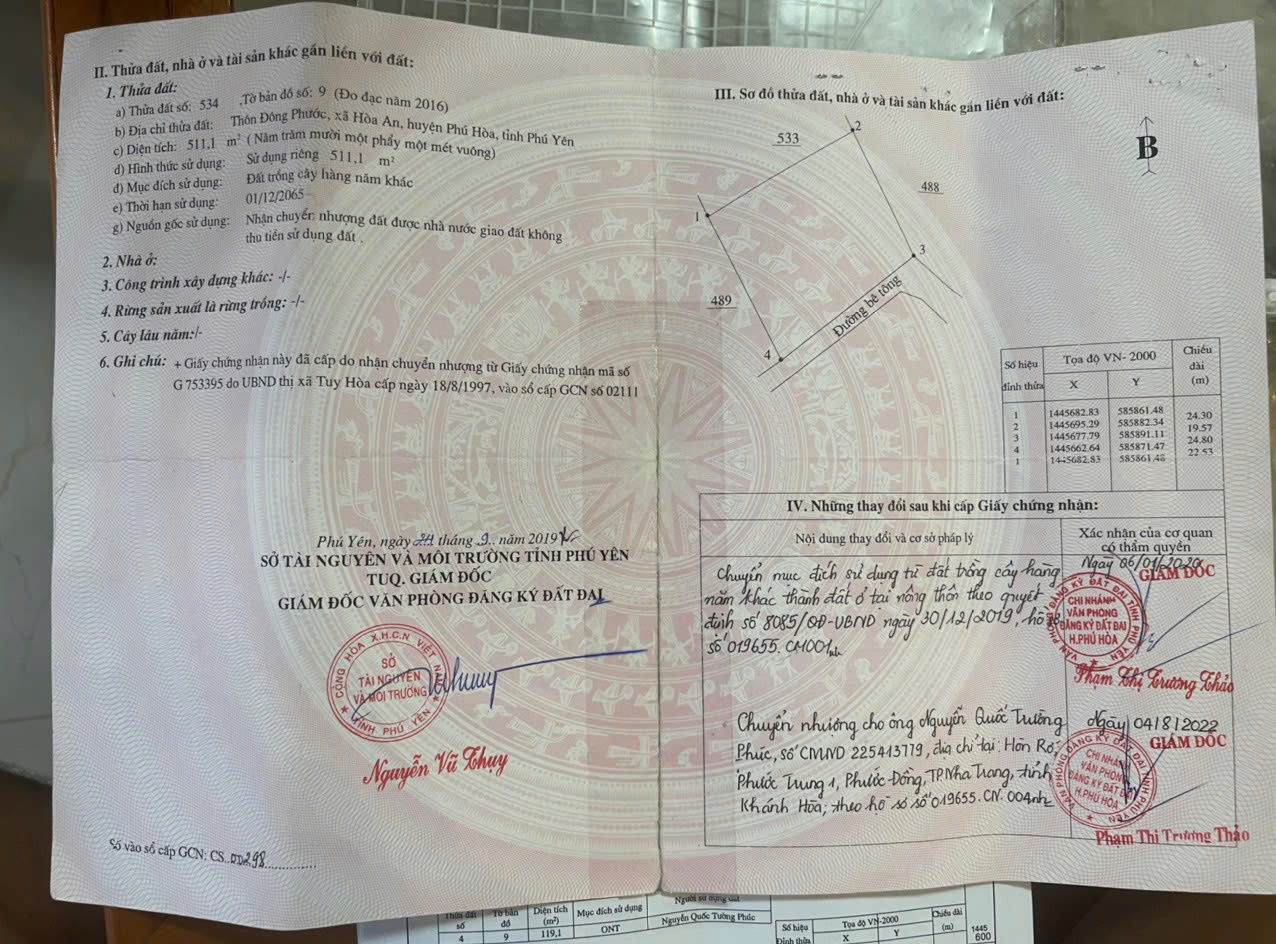 II. Thửa đất, nhà ở và tài sản khác gắn liền với đất:
1. Thửa đất:
a) Thửa đất số: 534 ,Tờ bản đồ số: 9 (Đo đạc năm 2016)
b) Địa chỉ thửa đất: Thôn Đông Phước, xã Hòa An, huyện Phú Hòa, tỉnh Phú Yên
c) Diện tích: 511,1 m² ( Năm trăm mười một phẩy một mét vuông)
d) Hình thức sử dụng: Sử dụng riêng 511,1 m²
đ) Mục đích sử dụng: Đất trồng cây hàng năm khác
e) Thời hạn sử dụng: 01/12/2065
g) Nguồn gốc sử dụng: Nhận chuyển nhượng đất được nhà nước giao đất không
thu tiền sử dụng đất .
2. Nhà ở:
3. Công trình xây dựng khác: -/-
4. Rừng sản xuất là rừng trồng: -/-
5. Cây lâu năm:/-
6. Ghi chú: + Giấy chứng nhận này đã cấp do nhận chuyển nhượng từ Giấy chứng nhận mã số
G 753395 do UBND thị xã Tuy Hòa cấp ngày 18/8/1997, vào sổ cấp GCN số 02111
Phú Yên, ngày 24 tháng 9.. năm 2019
SỞ TÀI NGUYÊN VÀ MÔI TRƯỜNG TỈNH PHÚ YÊN
TUQ. GIÁM ĐỐC
GIÁM ĐỐC VĂN PHÒNG ĐĂNG KÝ ĐẤT ĐAI
CỘNG HÒA X.H.C.N VIỆT NAM
SỞ
TÀI NGUYÊN
VÀ MÔI TRƯỜNG
TỈNH PHÚ YÊN
Nguyễn Vũ Thụy
Số vào sổ cấp GCN: CS..00298..............
III. Sơ đồ thửa đất, nhà ở và tài sản khác gắn liền với đất:
B
533
2
488
1
3
489
Đường bê tông
4
Số hiệu đỉnh thửa Tọa độ VN- 2000 Chiều dài (m)
X Y
1 1445682.83 585861.48
24.30
2 1445695.29 585882.34
19.57
3 1445677.79 585891.11
24.80
4 1445662.64 585871.47
22.53
1 1445682.83 585861.48
IV. Những thay đổi sau khi cấp Giấy chứng nhận:
Nội dung thay đổi và cơ sở pháp lý
Xác nhận của cơ quan
có thẩm quyền
Chuyển mục đích sử dụng từ đất trồng cây hàng
năm khác thành đất ở tại nông thôn theo quyết
định số 8085/QĐ-UBND ngày 30/12/2019, hồ sơ
số 019655.CM001
Ngày 06/01/2020
GIÁM ĐỐC
VĂN PHÒNG ĐĂNG KÝ ĐẤT ĐAI TỈNH PHÚ YÊN
CHI NHÁNH
VĂN PHÒNG
ĐĂNG KÝ ĐẤT ĐAI
H.PHÚ HÒA
Phạm Thị Trương Thảo
Chuyển nhượng cho ông Nguyễn Quốc Trường
Phúc, số CMND 225413779, địa chỉ tại: Hòn Rớ,
Phước Trung 1, Phước Đồng, TP.Nha Trang, tỉnh
Khánh Hòa; theo hồ sơ số 019655.CN.004
Ngày 04/8/2022
GIÁM ĐỐC
CHI NHÁNH
VĂN PHÒNG
ĐĂNG KÝ ĐẤT ĐAI
H.PHÚ HÒA
Phạm Thị Trương Thảo
Thửa đất số Tờ bản đồ Diện tích (m²) Mục đích sử dụng Người sử dụng đất
4 9 119,1 ONT Nguyễn Quốc Tường Phúc
Số hiệu Đỉnh thửa Tọa độ VN-2000 Chiều dài (m)
X Y
1445
600